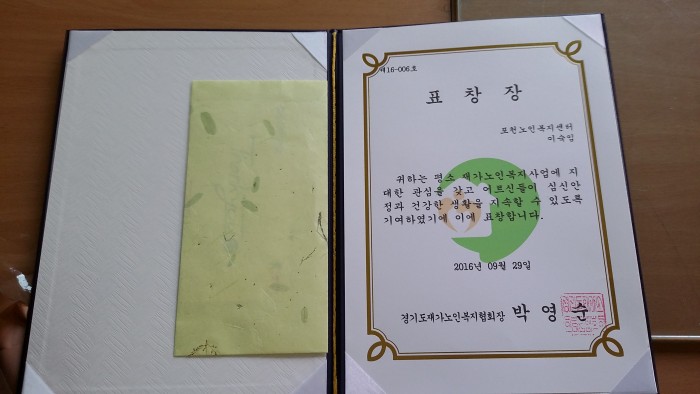 제16-006호
표 창 장
포천노인복지센터
이숙임
귀하는 평소 재가노인복지사업에 지
대한 관심을 갖고 어르신들이 심신안
정과 건강한 생활을 지속할 수 있도록
기여하였기에 이에 표창합니다.
2016년 09월 29일
경기도재가노인복지협회장 박 영 순